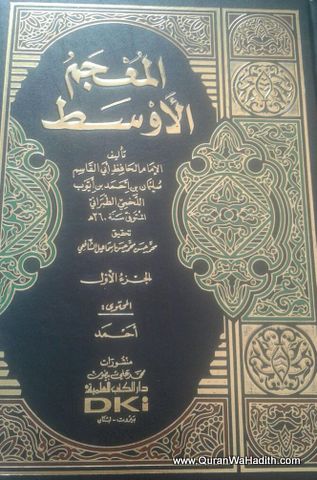 المُعْجَمُ
الأَوْسَط
تأليف
الإمام الحافظ أبي القاسم
سليمان بن أحمد بن أيوب
اللخمي الطبراني
المتوفى سنة ٣٦٠هـ
تحقيق
محمد حسن محمد حسن إسماعيل الشافعي
الجزء الأول
المحتوى:
أحمد
منشورات
محمد علي بيضون
دار الكتب العلمية
DKi
بيروت - لبنان
www.QuranWaHadith.com